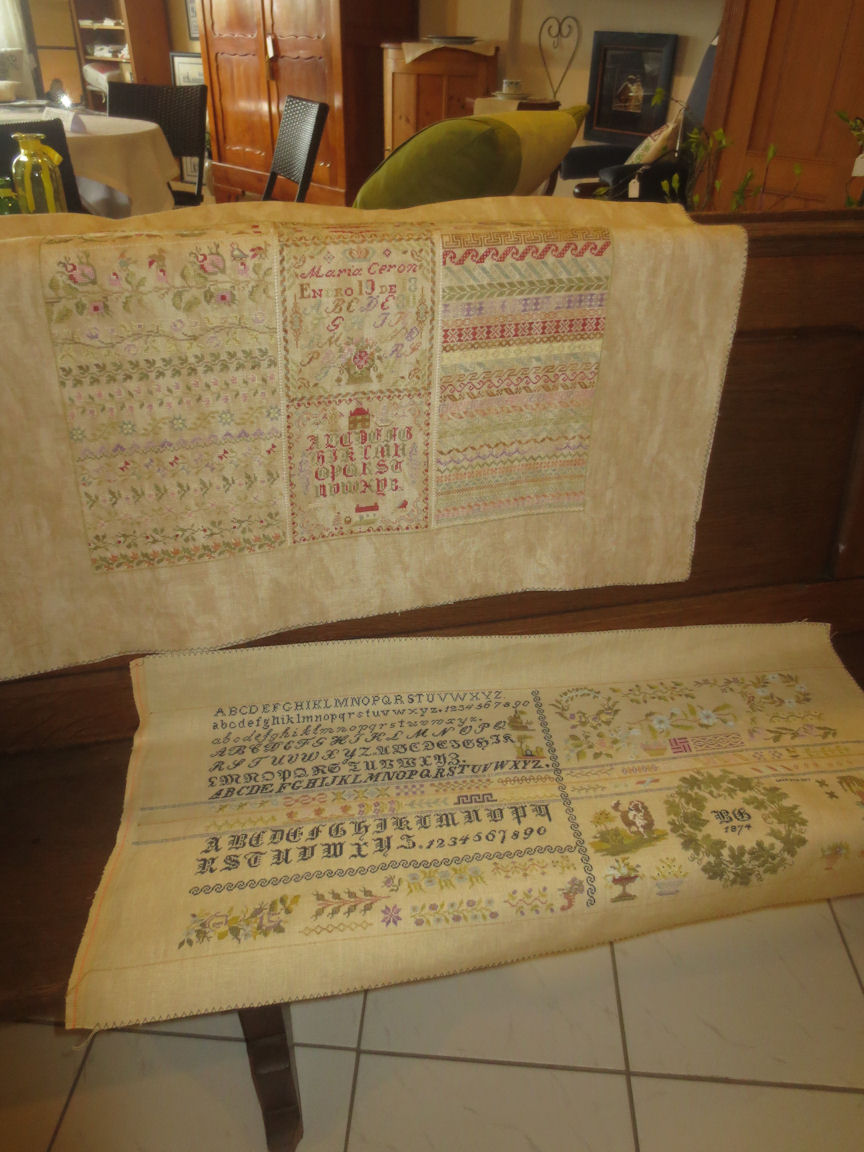 Maria Ceron
ENERO 19 DE 18
A B C D E
ABCDEFG
HIJKLMN
OPQRST
UVWXYZ
ABCDEFGHIJKLMNOPQRSTUVWXYZ
abcdefghijklmnopqrstuvwxyz.1234567890
abcdefghijklmnopqrstuvwxyz.
ABCDEFGHIJKLMNOPQ
RSTUVWXYZ.ABCDEFGHIK
LMNOPQRSTUVWXYZ.
ABCDEFGHIJKLMNOPQRSTUVWXYZ.
ABCDEFGHIJKLMNOPQ
RSTUVWXYZ.1234567890
BG
1874